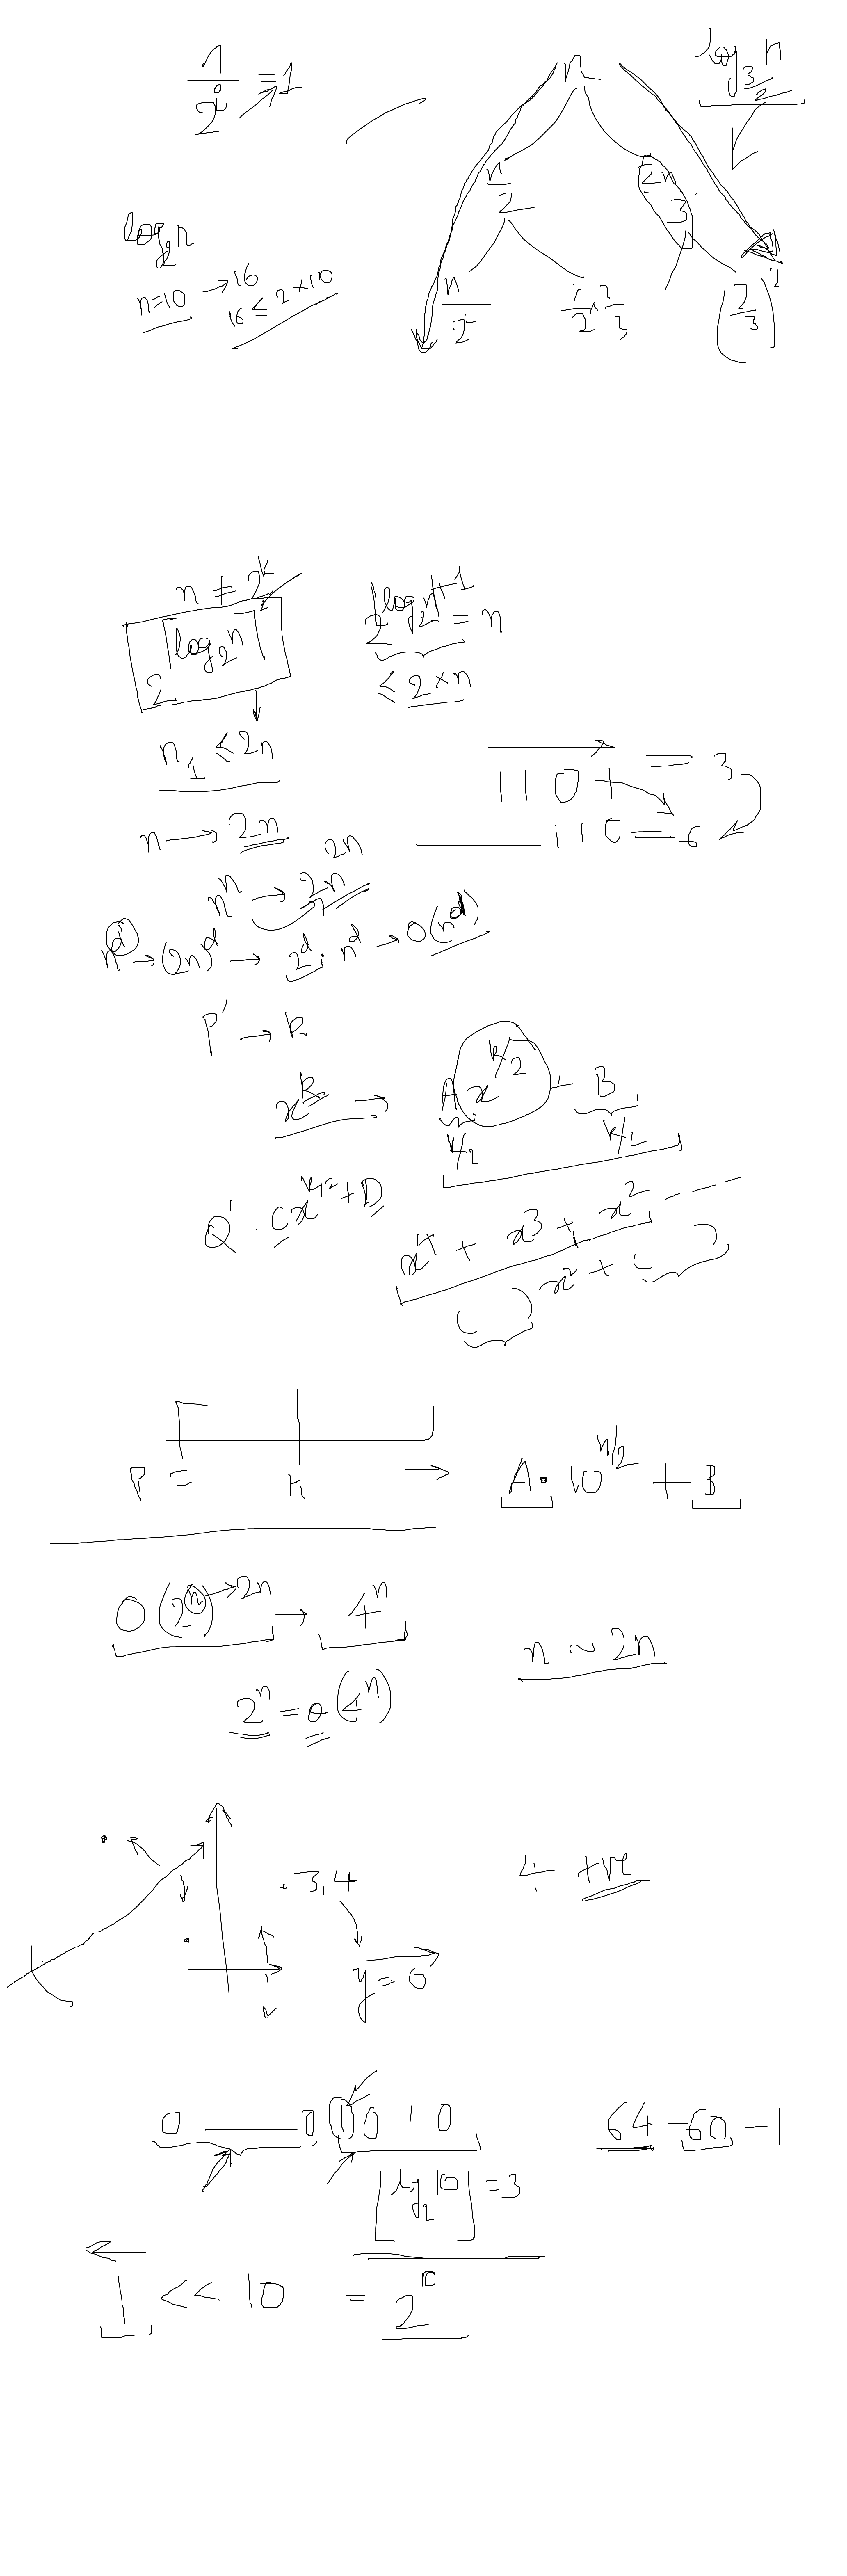 n/2^i = 1
n
log_{3/2} n
n/2
2n/3
log_2 n
n=10 → 16
16 ≤ 2×10
n/2^2
n/2 × 2/3
(2/3)^2
n ≠ 2^k
2^{⌈log_2 n⌉}
2^{⌊log_2 n⌋+1} = n
≤ 2×n
n_1 ≤ 2n
1 1 0 1 = 13
n → 2n
1 1 0 = 6
n^n → 2n^{2n}
n^d → (2n)^d → 2^d · n^d → O(n^d)
P' → k
x^k → A x^{k/2} + B
k/2 k/2
Q' : C x^{k/2} + D
x^4 + x^3 + x^2 - - -
( ) x^2 + ( )
P = n → A · 10^{n/2} + B
O(2^n) → 2n → 4^n
n ~ 2n
2^n = o(4^n)
. 3,4
4 +ve
y = 0
0 — 0 1 0 1 0
64 - 60 - 1
⌊log_2 10⌋ = 3
1 << 10 = 2^10